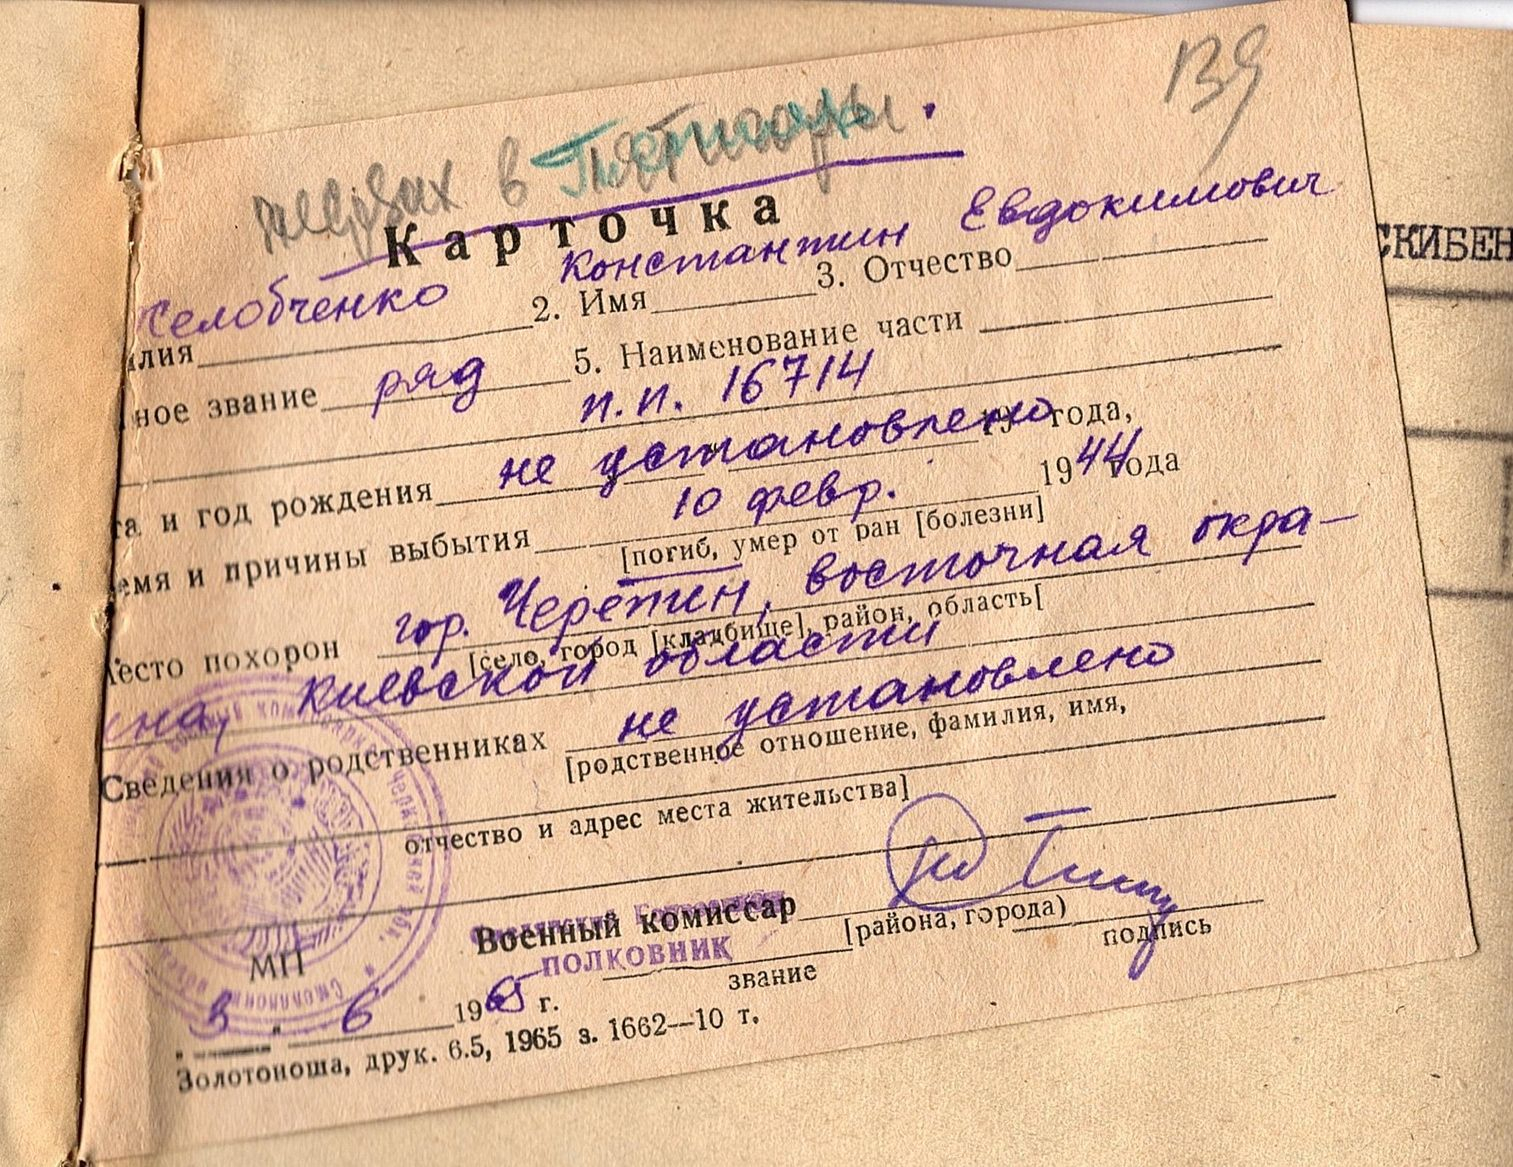 139
в Пятигоры.
Карточка
Константин Евдокимович
Желобченко
лия 2. Имя 3. Отчество
ное звание ряд 5. Наименование части
п.п. 16714
та и год рождения не установлено 19 года,
емя и причины выбытия 10 февр. 1944 года
[погиб, умер от ран [болезни]
есто похорон гор. Черепин, восточная окра-
[село, город [кладбище], район, область[
ина, Киевской области
Сведения о родственниках не установлено
[родственное отношение, фамилия, имя,
отчество и адрес места жительства]
Военный комиссар
[района, города)
полковник
МП звание подпись
"3" 6 1965 г.
Золотоноша, друк. 6.5, 1965 з. 1662—10 т.
СКИБЕН